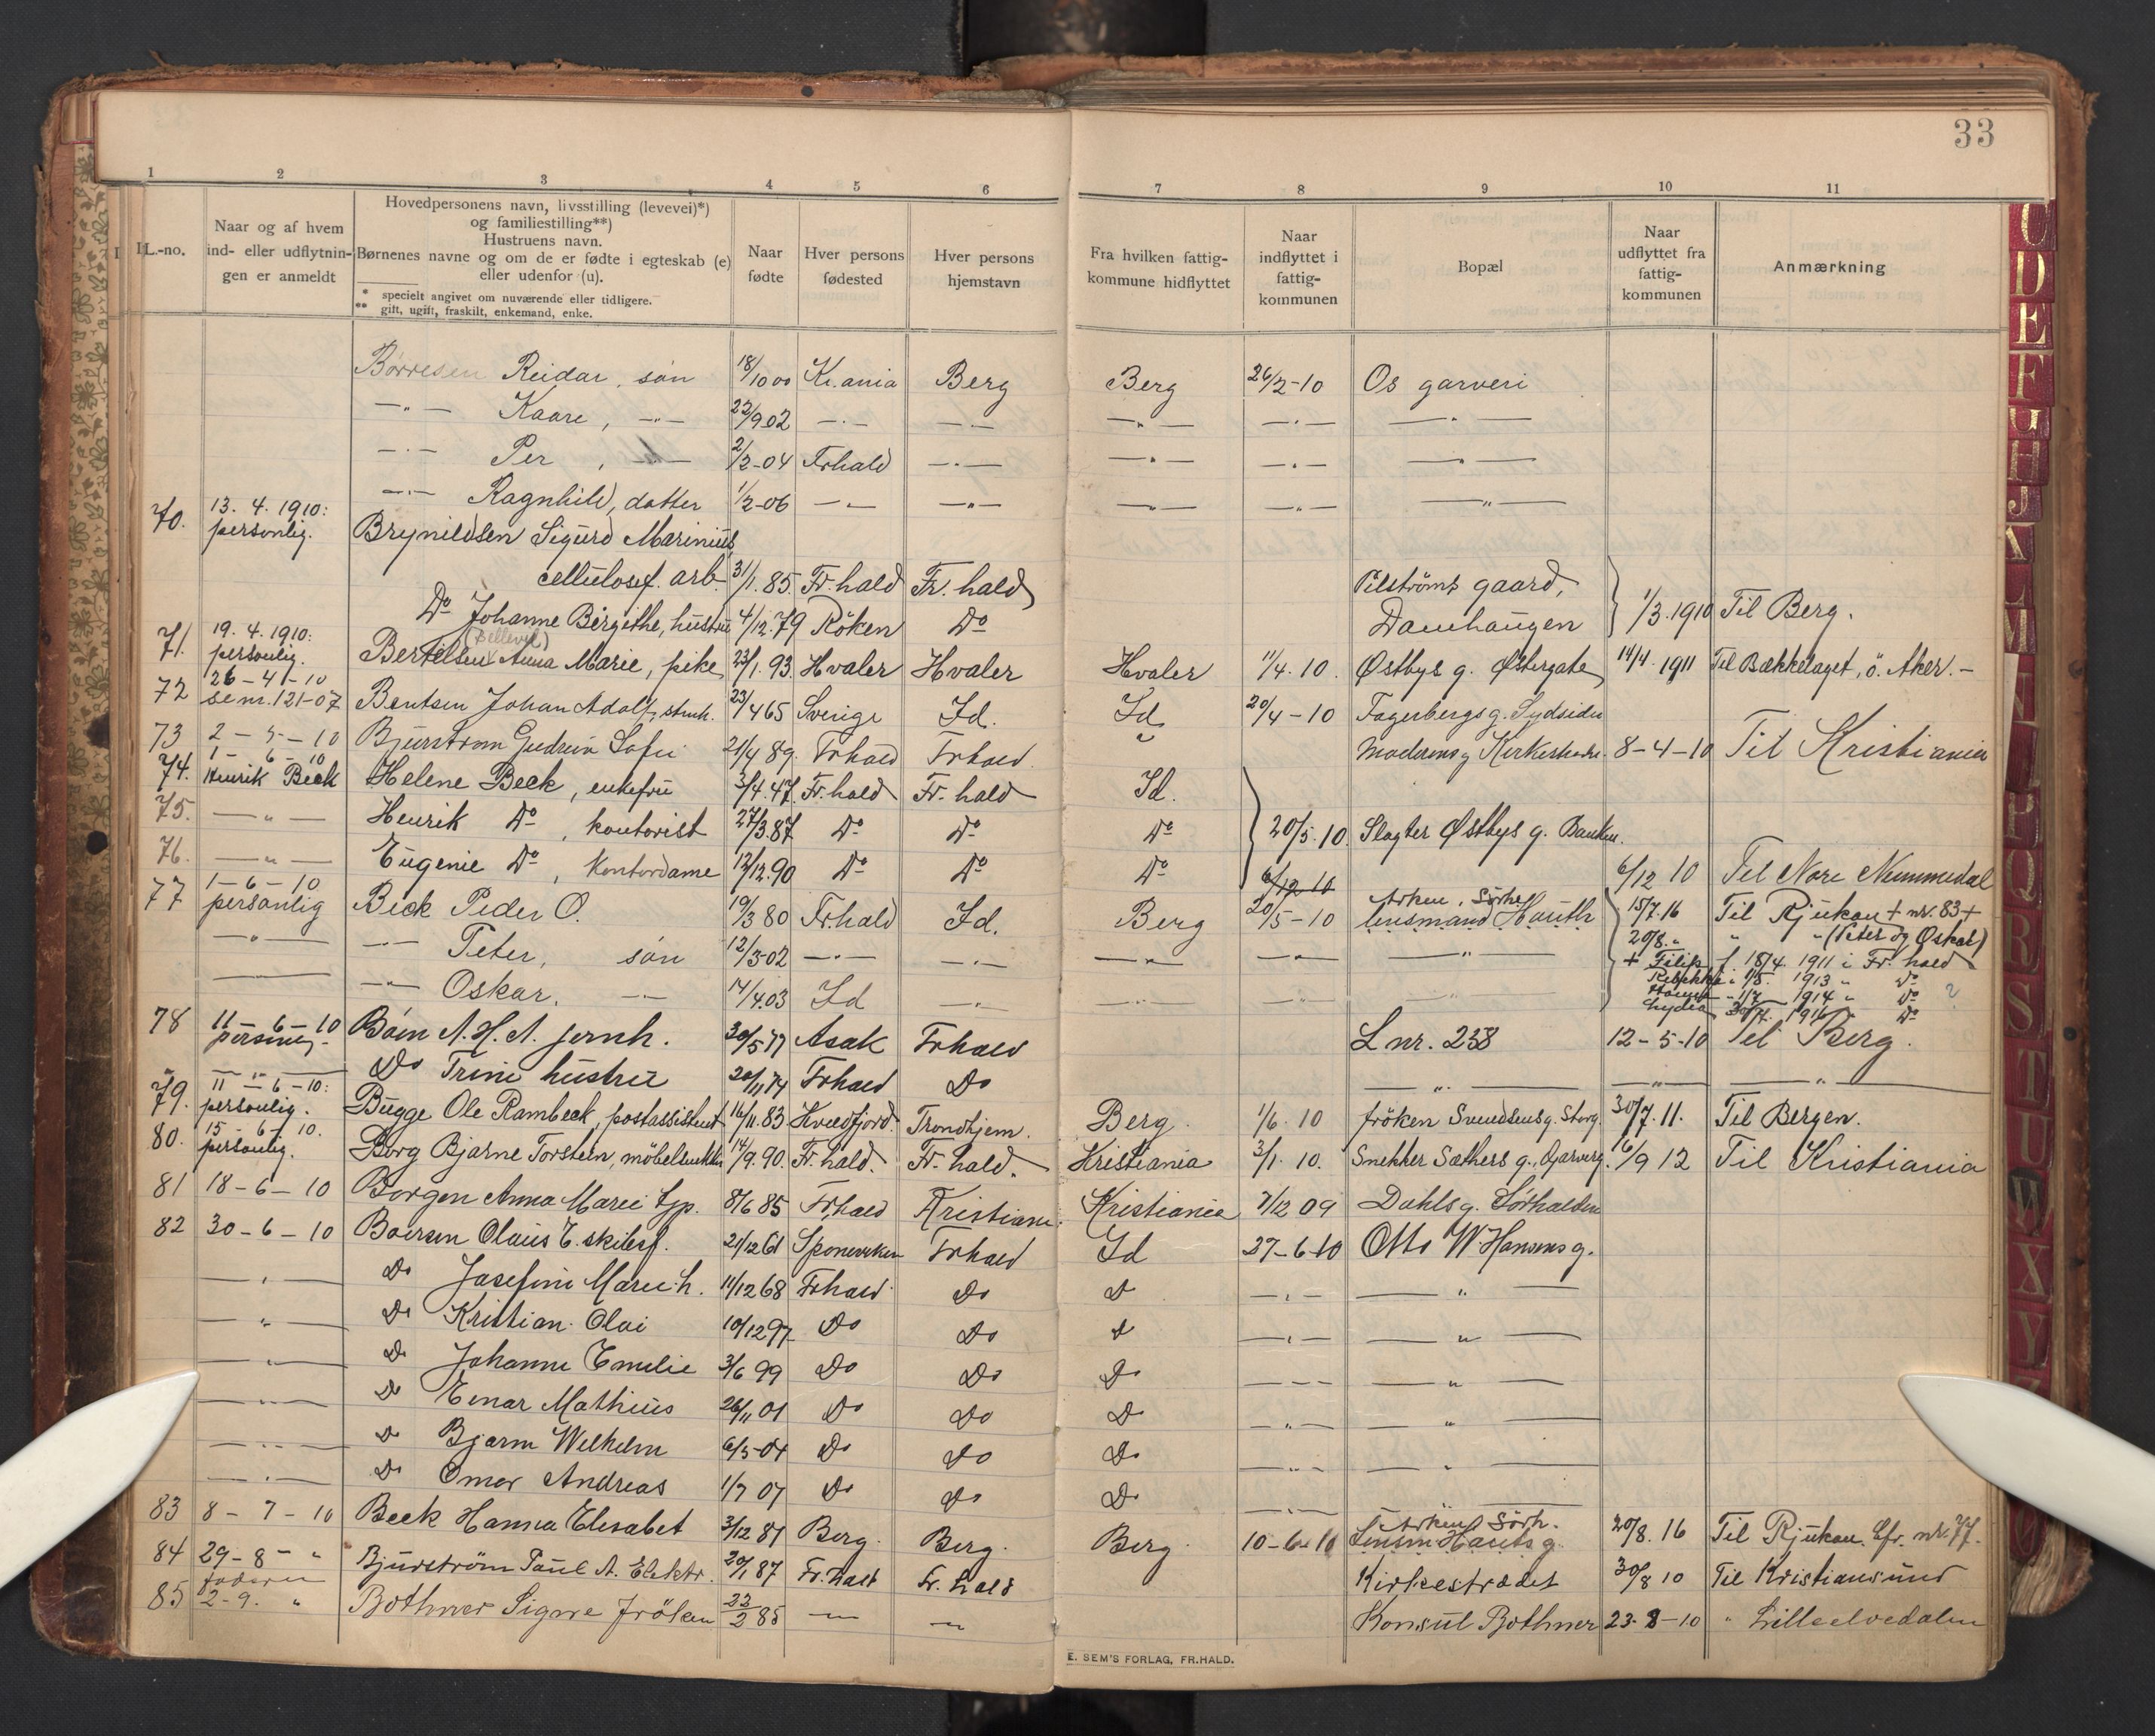 33
1 2 3 4 5 6 7 8 9 10 11
L.-no.
Naar og af hvem
ind- eller udflytnin-
gen er anmeldt
Hovedpersonens navn, livsstilling (levevei)*)
og familiestilling**)
Hustruens navn.
Børnenes navne og om de er fødte i egteskab (e)
eller udenfor (u).
* specielt angivet om nuværende eller tidligere.
** gift, ugift, fraskilt, enkemand, enke.
Naar
fødte
Hver persons
fødested
Hver persons
hjemstavn
Fra hvilken fattig-
kommune hidflyttet
Naar
indflyttet i
fattig-
kommunen
Bopæl
Naar
udflyttet fra
fattig-
kommunen
Anmærkning
Børresen Reidar, søn 18/10 00 Kr.ania Berg Berg 26/2-10 Os garveri
—"— Kaare, —"— 22/9 02 —"— —"— —"— —"— —"—
—"— Per, —"— 2/2-04 Frhald —"— —"— —"— —"—
—"— Ragnhild, datter 1/2-06 —"— —"— —"— —"— —"—
70. 13. 4. 1910: personlig. Brynildsen Sigurd Marinius
cellulosef. arb. 31/1. 85. Fr.hald Fr.hald Pilströms gaard,
Do Johanne Birgithe, hustru 4/12.79 Röken Do Damhaugen 1/3.1910 Til Berg.
71. 19. 4. 1910: personlig. Bertelsen Anna Marie, pike 23/1. 93. Hvaler Hvaler Hvaler 11/4. 10. Østbys g. Østergate 14/4. 1911 Til Bækkelaget, ö. Aker.-
72 26-4-10 se nr. 121-07 Bentsen Johan Adolf, stenh. 23/4 65 Sverige Id. Id. 20/4-10 Fagerbergs g. Sydsiden
73 2-5-10 Bjurstrom Gudrun Sofie 21/4 89. Frhald Frhald " Moderens g Kirkestredet 8-4-10 Til Kristiania
74. 1-6-10 Henrik Beck Helene Beck, enkefru 3/4.47. Fr.hald Fr.hald Id.
75. —"— Henrik Do, kontorist 27/3.87 Do Do Do 20/5.10. Slagter Østbys g. Banken.
76. —"— Eugenie Do, Kontordame 12/12.90 Do Do Do 6/12 10 6/12 10 Til Nore Nummedal
77 1-6-10 personlig Beck Peder O. 19/3 80 Frhald Id. Berg 20/5-10 Arken, Sørh. lensmand Hauth 15/7.16 Til Rjukan + nr. 83 +
—"— —"— Peter, søn 12/3-02 —"— —"— —"— —"— —"— 20/8. " " " (Peter og Oskar)
— —"— Oskar, —"— 14/4.03 Id —"— —"— —"— —"— + Filip f 18/4. 1911 i Fr.hald
Rebekka " 1/8. 1913 " Do
1/7 1914 " Do
Lydia 1916 " Do
78 11-6-10 personlig Bóm A. H. A. jernh. 30/5 77 Asak Frhald L nr. 238 12-5-10 Til Berg.
—"— Do Trine hustru 20/11 74 Frhald Do —"— —"— —"—
79. 11-6-10: personlig. Bugge Ole Rambeck, postassistent 16/11.83. Kvædfjord. Trondhjem. Berg. 1/6. 10 fröken Svendsens g. Storg. 30/7. 11. Til Bergen.
80. 15-6-10. personlig. Borg Bjarne Torstein, möbelsnekker 14/9. 90. Fr.hald. Fr.hald. Kristiania 3/1. 10. Snekker Sæthers g., Garverg. 16/9 12 Til Kristiania
81 18-6-10 Borgen Anna Marie tjp. 8/6 85 Frhald Kristiania. Kristiania 7/12 09 Dahls g. Sörhalden
82 30-6-10 Boersen Olaus E. skibsf. 21/12 61 Sponvirken Frhald Id 27-6-10 Otto W. Hansens g.
—"— Do Josefine Marie h. 11/12 68 Frhald Do Do —"— —"—
—"— Do Kristian Olai 10/12 97 Do Do Do —"— —"—
—"— Do Johanne Emilie 3/6 99 Do Do Do —"— —"—
—"— Do Einar Mathius 26/11 01 Do Do Do —"— —"—
—"— Do Bjarne Wilhelm 6/5-04 Do Do Do —"— —"—
—"— Do Omar Andreas 1/7 07 Do Do Do —"—
83 8-7-10 Beck Hanna Elisabet 3/12 81 Berg. Berg. Berg 10-6-10 Arken, Sörh. Lensm. Hauths g. 20/8. 16 Til Rjukan. Cfr. nr. 77.
84 29-8-" faderen Bjurström Paul A. Elektr. 20/1 87 Fr.hald Fr.hald Kirkestrædet 30/8 10 Til Kristiansund
85 2-9. " Bothner Signe fröken 22/2 85 —"— —"— Konsul Bothner 23-8-10 " Lilleelvedalen
E. SEM'S FORLAG, FR.HALD.
C
D
E
F
G
H
J
K
L
M
N
P
Q
R
S
T
U
W
X
Y